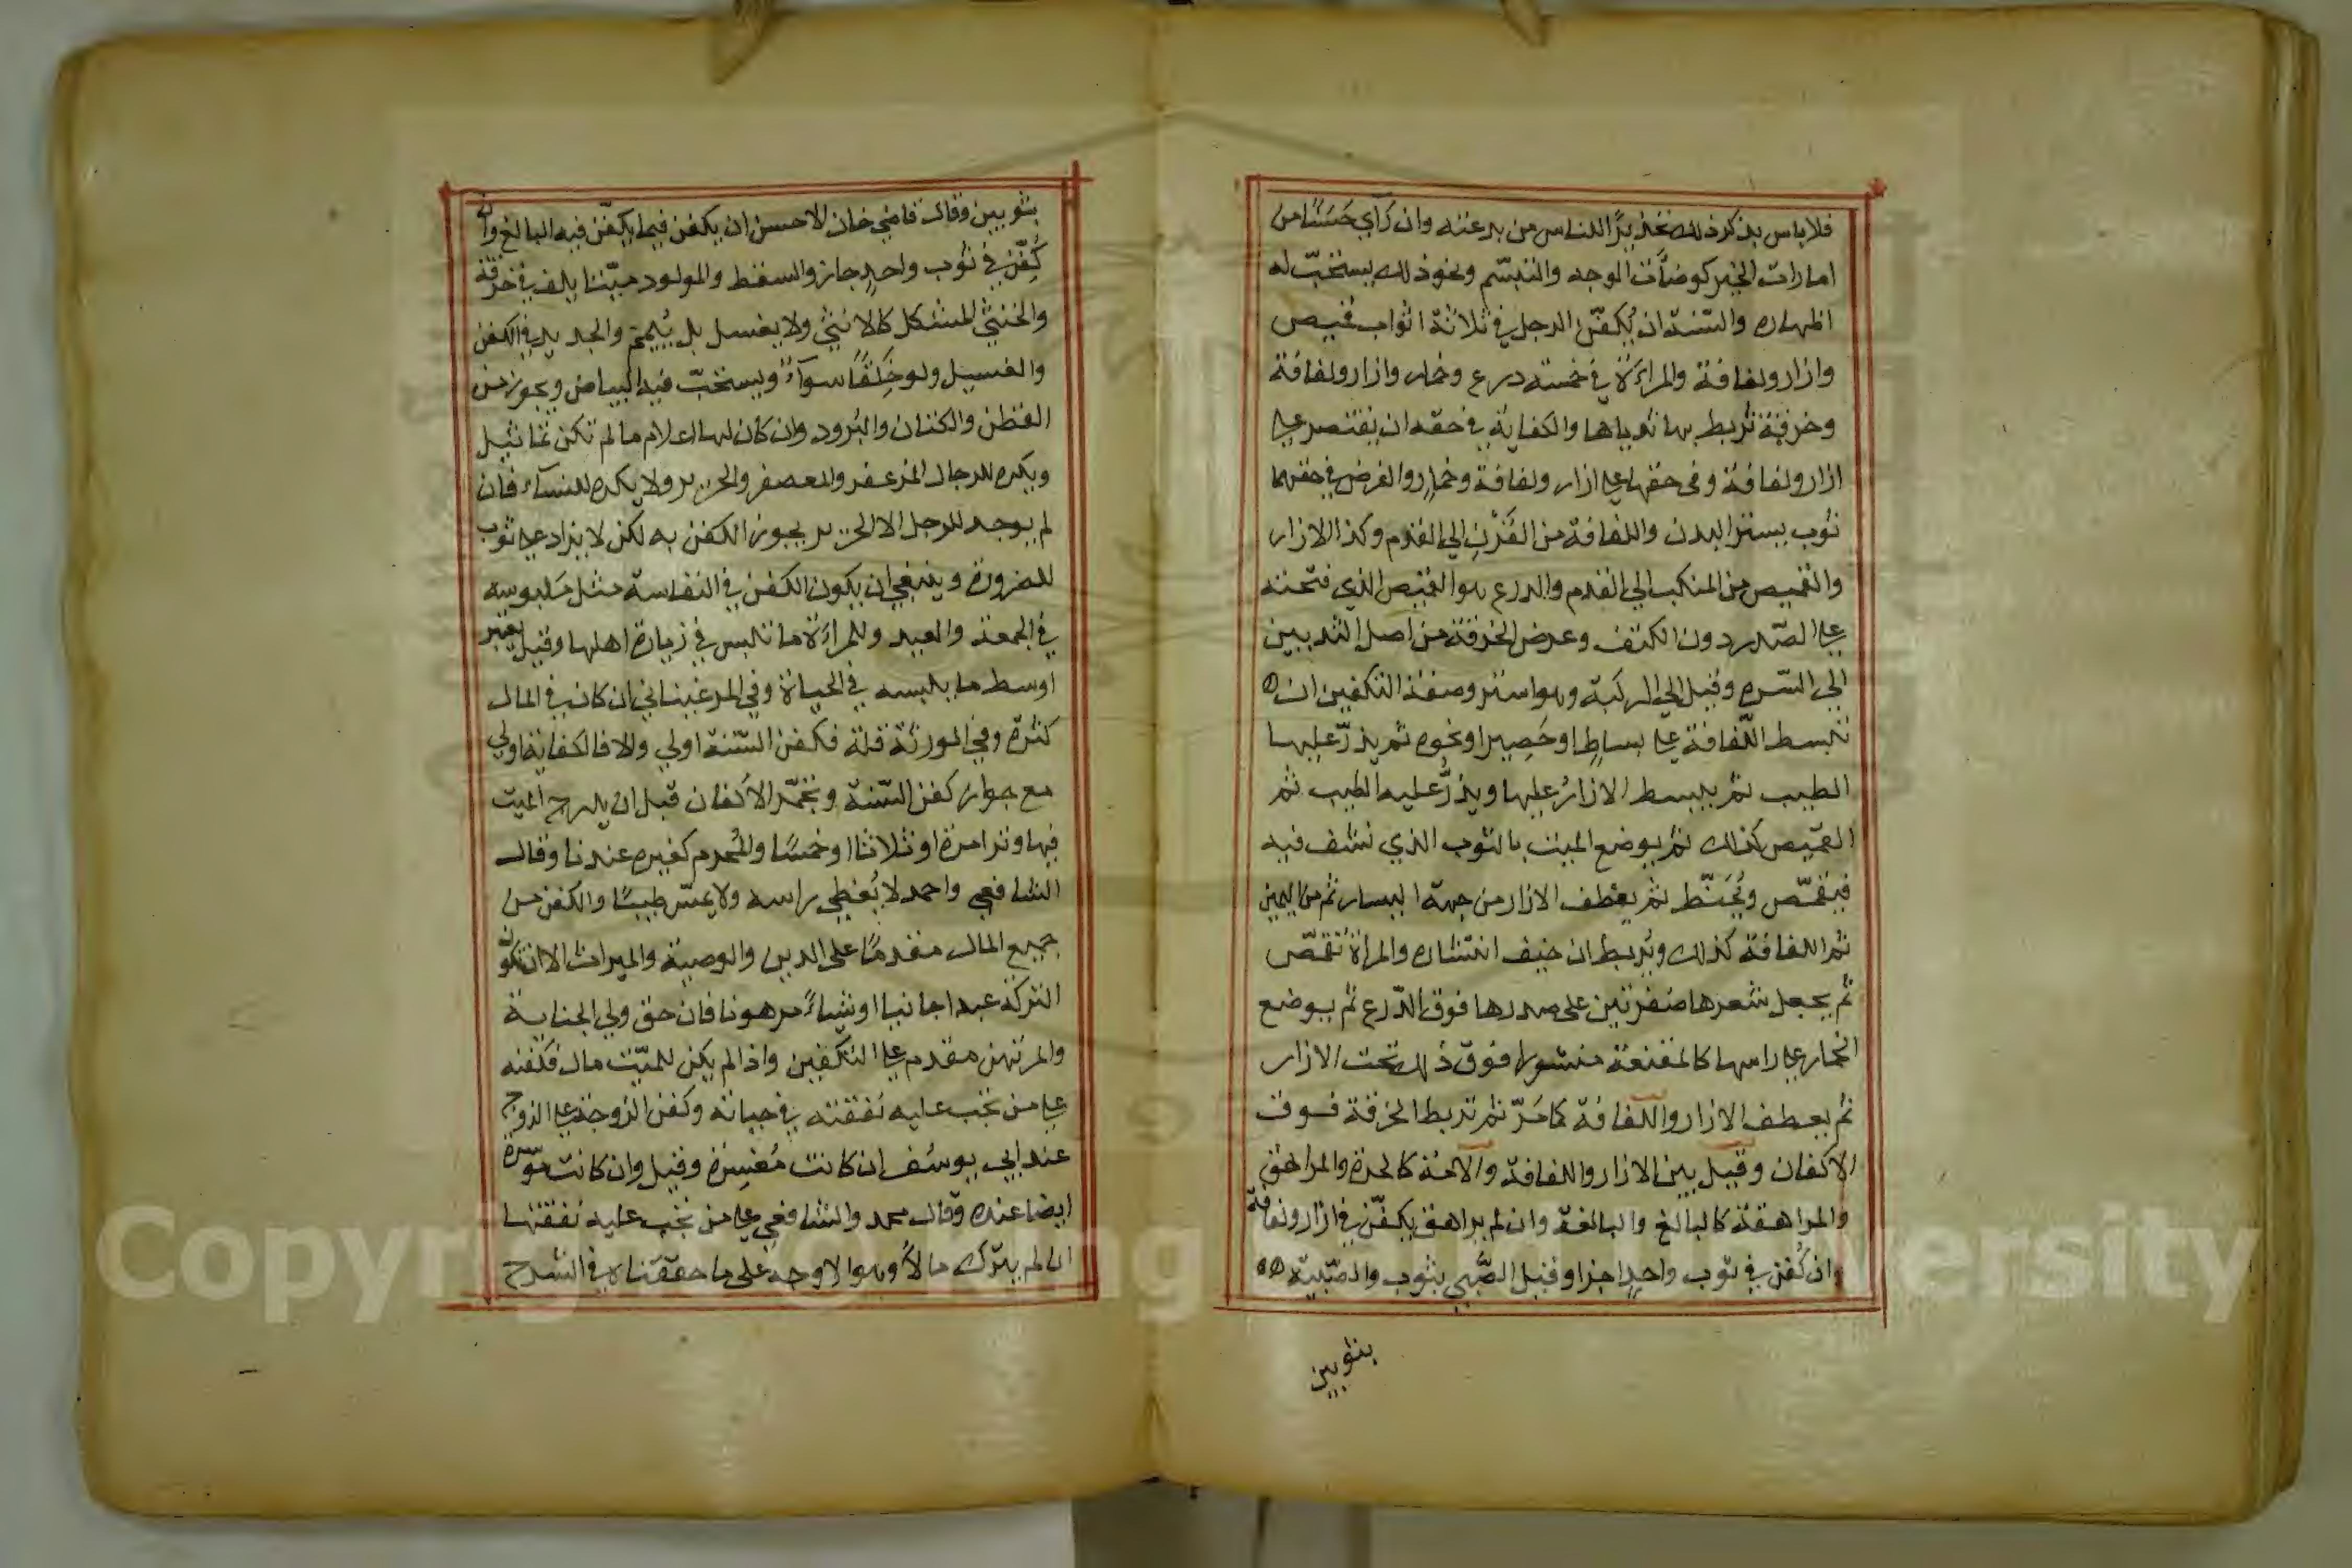 فلا باس بذكر ذلك تحذيرًا للناس من بدعته وان رآي حَسَنًا من
امارات الخير كوضاَّت الوجه والتبسّم ونحو ذلك يستحبّ له
اظهاره والسّنة ان يُكفّن الرجل في ثلاثة اثواب قميص
وازار ولفافة والمراءَة في خمسة درع وخمار وازار ولفافة
وخرقة تربط بها ثدياها والكفاية في حقه ان يقتصر على
ازار ولفافة وفي حقها على ازار ولفافة وخمار والفرض في حقهما
ثوب يستر البدن واللفافة من القَرْنِ الي القدم وكذا الازار
والقميص من المنكب الي القدم والدرع هو القميص الذي فتحته
على الصّدر دون الكتف وعرض الخرقة من اصل الثديين
الي السّره وقيل الي الركبة وهو استر وصفة التكفين ان
تبسط اللّفافة على بساطٍ او حَصِير او نحوه ثم يذرّ عليها
الطيب ثم يبسط الازارُ عليها ويذرُّ عليه الطيب ثم
القميص كذلك ثم يوضع الميت بالثوب الذي نشف فيه
فيقمّص ويُحَنّط ثم يعطف الازار من جهة اليسار ثم من اليمين
ثم اللفافة كذلك ويُربط ان خيف انتشاره والمراة تقمّص
ثم يجعل شعرها ضفرتين على صدرها فوق الدّرع ثم يوضع
الخمار على راسها كالمقنعة منشورا فوق ذلك تحت الازار
ثم يعطف الازار واللّفافة كما مَرّ ثم تربط الخرقة فوق
الاكفان وقيل بين الازار واللفافة والامة كالحرة والمراهق
والمراهقة كالبالغ والبالغة وان لم يراهق يكفّن في ازار ولفافة
وان كُفن في ثوب واحدٍ اجزا وقيل الصّبي بثوب والصّبيّة
بثوبين
بثوبين وقال قاضي خان الاحسن ان يكفن فيما يكفّن فيه البالغ وان
كُفّن في ثوب واحدٍ جاز والسقط والمولود ميّتا يلف في خرقة
والخنثي المشكل كالانثي ولا يغسل بل يُيمّم والجديد في الكفن
والغسيل ولو خَلَقًا سوآءً ويستحبّ فيه البياض ويجوز من
القطن والكتان والبُرود وان كان لها اعلام ما لم تكن تماثيل
ويكره للرجال المزعفر والمعصفر والحرير ولا يكره للنسآء فان
لم يوجد للرجل الا الحرير يجوز الكفن به لكن لا يزاد على ثوب
للضرورة وينبغي ان يكون الكفن في النفاسة مثل مَلبوسه
في الجمعة والعيد وللمراءَة ما تلبس في زيارة اهلها وقيل يعتبر
اوسط ما يلبسه في الحياة وفي المرغيناني ان كان في المال
كثرة وفي الورثة قلة فكفن السّنة اولي والا فالكفاية اولي
مع جواز كفن السّنة وتجمّر الأكفان قبل ان يدرج الميت
فيها وترا مرة او ثلاثا او خمسًا والمُحرم كغيره عندنا وقال
الشافعي واحمد لا يُغطي راسه ولا يمسّ طيبًا والكفن من
جميع المال مقدمًا على الدين والوصية والميراث الا ان تكون
التركة عبدا جانيا او شياءً مرهونا فان حق ولي الجناية
والمرتهن مقدم على التكفين واذا لم يكن للميّت مال فكفنه
على من تجب عليه نفقته في حياته وكفن الزوجة على الزوج
عند ابي يوسُف ان كانت مُعْسِرة وقيل وان كانت موسرة
ايضا عنده وقال محمد والشافعي على من تجب عليه نفقتها
ان لم يترك مالاً وهو الاوجه على ما حقّقناه في الشرح
Copyright © King University